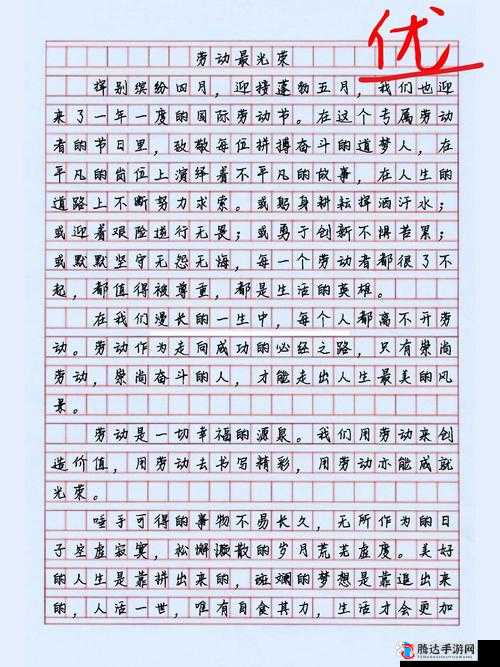 优
劳动最光荣
挥别缤纷四月，迎接蓬勃五月，我们也迎
来了一年一度的国际劳动节。在这个专属劳动
者的节日里，致敬每位拼搏奋斗的追梦人，在
平凡的岗位上演绎着不平凡的故事，在人生的
道路上不断努力求索。或躬身耕耘挥洒汗水；
或迎着艰险逆行无畏；或勇于创新不惧苦累；
或默默坚守无怨无悔，每一个劳动者都很了不
起，都值得被尊重，都是生活的英雄。
在我们漫长的一生中，每个人都离不开劳
动。劳动作为走向成功的必经之路，只有崇尚
劳动，崇尚奋斗的人，才能走出人生最美的风
景。
劳动是一切幸福的源泉。我们用劳动来创
造价值，用劳动去书写精彩，用劳动亦能成就
光荣。
唾手可得的事物不易长久，无所作为的日
子空虚寂寞，松懈涣散的岁月荒芜虚度。美好
的人生是靠拼出来的，斑斓的梦想是靠追出来
的，人活一世，唯有自食其力，生活才会更加
腾达手游网